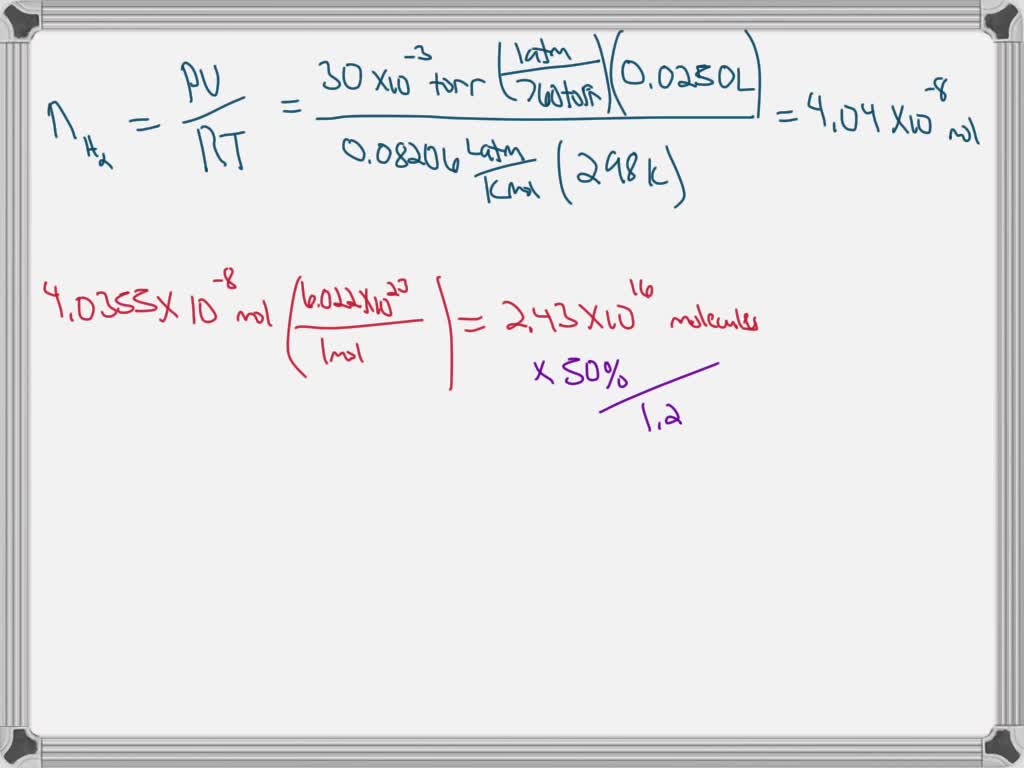 n_H₂ = PV/RT = 30 x10⁻³ torr (1atm/760torr)(0.0250L) / 0.08206 Latm/Kmol (298K) = 4.04 x10⁻⁸ mol
4.0355 x 10⁻⁸ mol (6.022 x10²³/1mol) = 2.43 x10¹⁶ molecules
x 50%
1.2